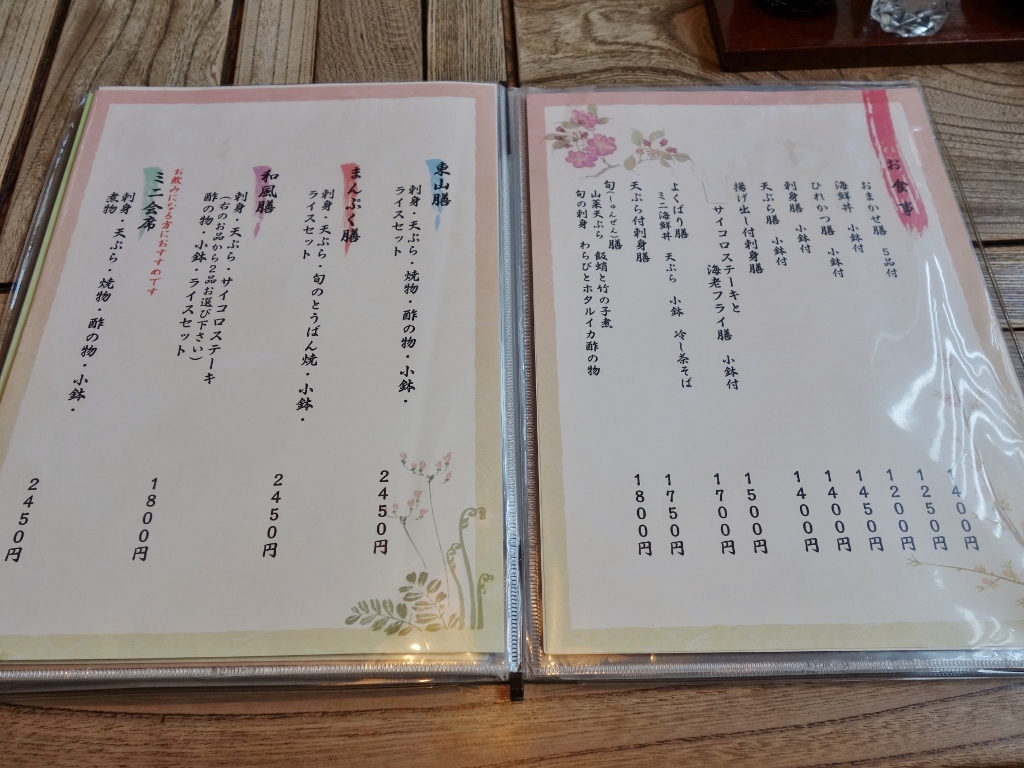 お食事
おまかせ膳 5品付
海鮮丼 小鉢付
ひれかつ膳 小鉢付
刺身膳 小鉢付
天ぷら膳 小鉢付
揚げ出し付刺身膳
サイコロステーキと
海老フライ膳 小鉢付
よくばり膳 天ぷら 小鉢 冷し茶そば
ミニ海鮮丼
天ぷら付刺身膳
旬(しゅんぜん)膳
山菜天ぷら 飯蛸と竹の子煮
旬の刺身 わらびとホタルイカ酢の物
1400円
1250円
1200円
1450円
1400円
1400円
1500円
1700円
1750円
1800円
東山膳
刺身・天ぷら・焼物・酢の物・小鉢・
ライスセット
2450円
まんぷく膳
刺身・天ぷら・旬のとうばん焼・小鉢・
ライスセット
2450円
和風膳
刺身・天ぷら・サイコロステーキ
(右のお品から2品お選び下さい)
酢の物・小鉢・ライスセット
1800円
お飲みになる方におすすめです
ミニ会席
刺身・天ぷら・焼物・酢の物・小鉢・
煮物
2450円